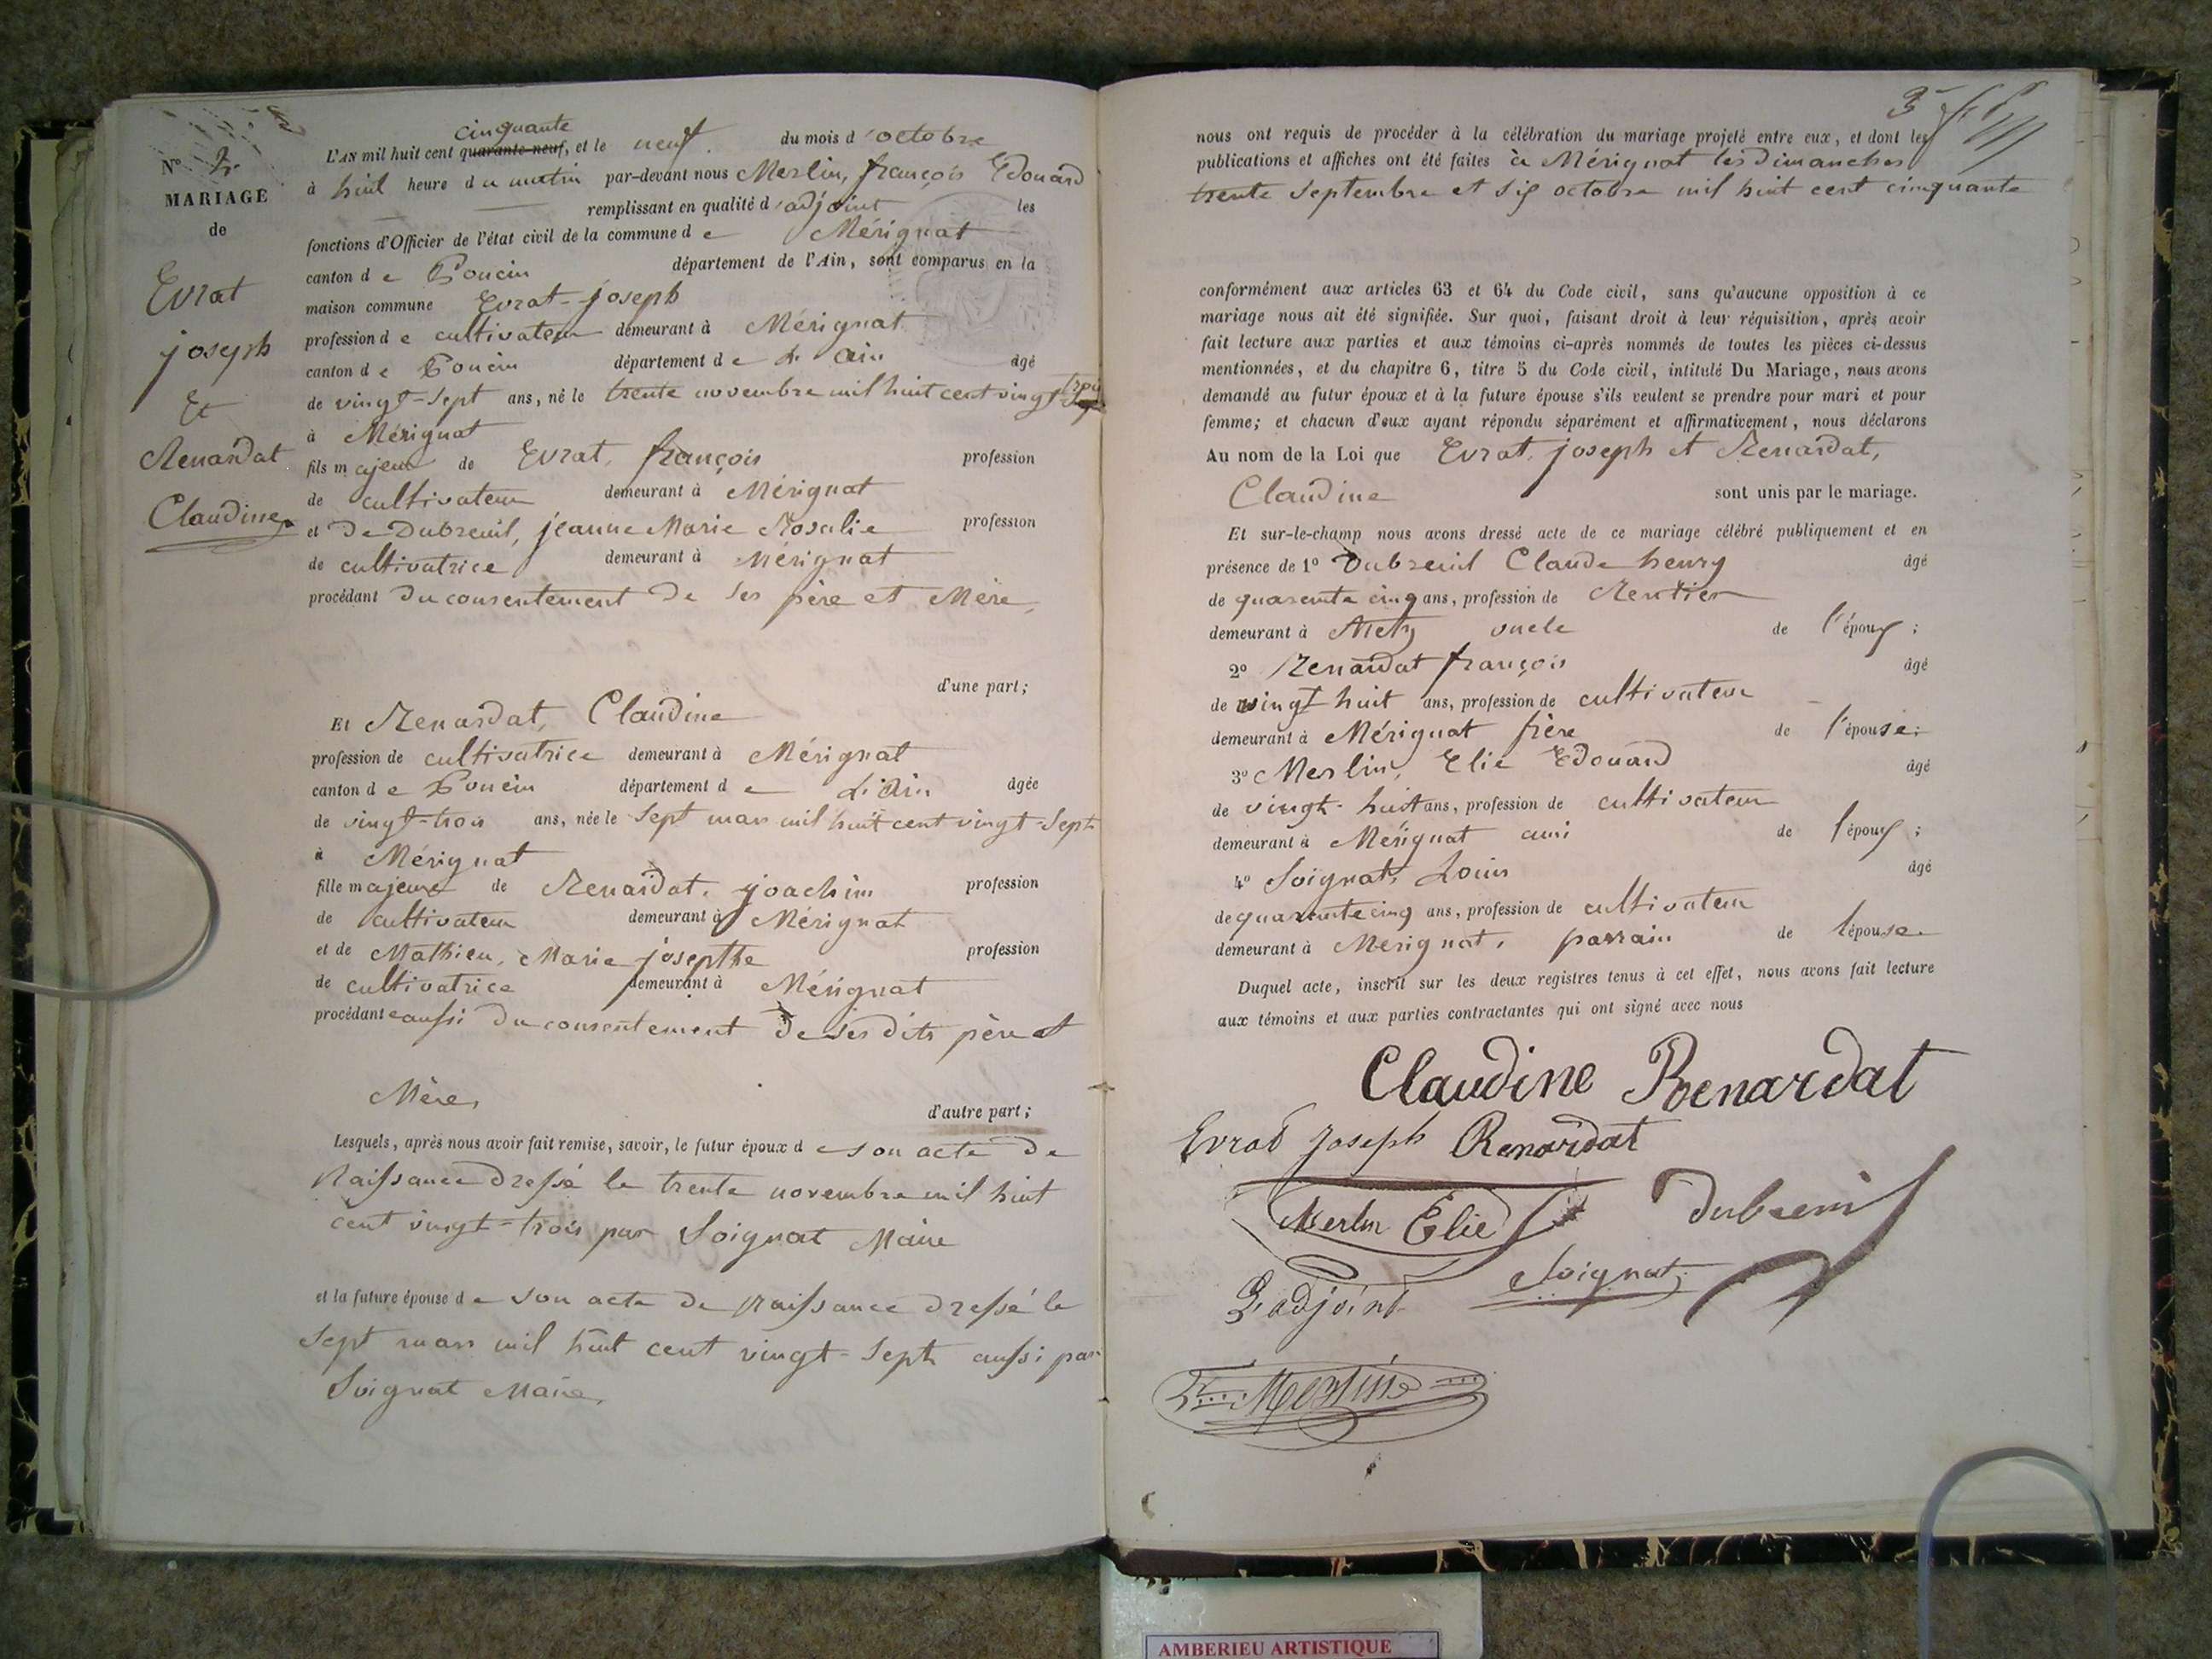 cinquante
L'AN mil huit cent quarante-neuf, et le neuf du mois d'octobre
à huit heure du matin par-devant nous Merlin, françois Edouard
remplissant en qualité d'adjoint les
fonctions d'Officier de l'état civil de la commune de Mérignat
canton de Poncin département de l'Ain, sont comparus en la
maison commune Evrat joseph
profession de cultivateur demeurant à Mérignat
canton de Poncin département de L'ain âgé
de vingt-sept ans, né le trente novembre mil huit cent vingt trois
à Mérignat
fils majeur de Evrat, françois profession
de cultivateur demeurant à Mérignat
et de Dubreuil, jeanne Marie Rosalie profession
de cultivatrice demeurant à Mérignat
procédant du consentement de ses père et Mère,
d'une part;
Et Renardat, Claudine
profession de cultivatrice demeurant à Mérignat
canton de Poncin département de L'Ain âgée
de vingt-trois ans, née le sept mars mil huit cent vingt-sept
à Mérignat
fille majeure de Renardat, joachim profession
de cultivateur demeurant à Mérignat
et de Mathieu, Marie josepthe profession
de cultivatrice demeurant à Mérignat
procédante aussi du consentement de ses dits père et
Mère,
d'autre part;
Lesquels, après nous avoir fait remise, savoir, le futur époux de son acte de
Naissance dressé le trente novembre mil huit
cent vingt-trois par Soignat Maire
et la future épouse de son acte de Naissance dressé le
sept mars mil huit cent vingt-sept aussi par
Soignat Maire,
N° 2.
MARIAGE
de
Evrat
joseph
Et
Renardat
Claudine
3
nous ont requis de procéder à la célébration du mariage projeté entre eux, et dont les
publications et affiches ont été faites à Mérignat les dimanches
trente Septembre et six octobre mil huit cent cinquante
conformément aux articles 63 et 64 du Code civil, sans qu'aucune opposition à ce
mariage nous ait été signifiée. Sur quoi, faisant droit à leur réquisition, après avoir
fait lecture aux parties et aux témoins ci-après nommés de toutes les pièces ci-dessus
mentionnées, et du chapitre 6, titre 5 du Code civil, intitulé Du Mariage, nous avons
demandé au futur époux et à la future épouse s'ils veulent se prendre pour mari et pour
femme; et chacun d'eux ayant répondu séparément et affirmativement, nous déclarons
Au nom de la Loi que Evrat, joseph et Renardat,
Claudine sont unis par le mariage.
Et sur-le-champ nous avons dressé acte de ce mariage célébré publiquement et en
présence de 1° Dubreuil Claude henry âgé
de quarente cinq ans, profession de Rentier
demeurant à Metz oncle de l'époux;
2° Renardat françois âgé
de vingt huit ans, profession de cultivateur
demeurant à Mérignat frère de l'épouse;
3° Merlin, Elie Edouard âgé
de vingt-huit ans, profession de cultivateur
demeurant à Mérignat ami de l'époux;
4° Soignat, Louis âgé
de quarante cinq ans, profession de cultivateur
demeurant à Mérignat, parrain de l'épouse.
Duquel acte, inscrit sur les deux registres tenus à cet effet, nous avons fait lecture
aux témoins et aux parties contractantes qui ont signé avec nous
Claudine Renardat
Evrat Joseph Renardat
Merlin Elie Dubreuil
L'adjoint Soignat
Merlin
AMBERIEU ARTISTIQUE